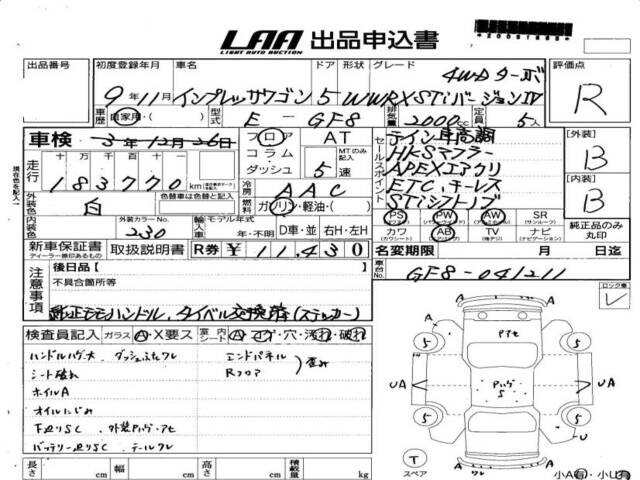 LAA 出品申込書
LIGHT AUTO AUCTION
出品番号 初度登録年月 車名 ドア 形状 グレード 評価点
4WDターボ
9年11月 インプレッサワゴン 5 W WRX STiバージョンIV R
車歴 自家用 型式 E - GF8 排気量 2000cc 定員 5人
車検 3年12月26日 フロア AT
コラム・ダッシュ MTのみ記入 5速
走行 十万千百十
183770 km
冷房 AAC
現在色を記入
外装色 白 色替車は色替と記入 燃料 ガソリン・軽油・( )
内装色 外装カラーNo. 230 輸入車 モデル年式 年・不明 D車・並 右H・左H
新車保証書 取扱説明書 R券 ¥11,430
ディーラー様印あるもの
セールスポイント
テイン車高調
HKSマフラー
APEXエアクリ
ETC、キーレス
STiシフトノブ
PS PW AW SR
(パワステ) (パワーウィンド) (サンルーフ)
カワ AB TV ナビ
(カワシート) (エアバッグ) (ナビゲーション)
【外装】 B
【内装】 B
純正品のみ丸印
名変期限 月 日迄
車台No. GF8-041211
ロック車
レ
注意事項
後日品「 」
不具合箇所等
純正モモハンドル、タイベル交換済(ステッカー)
検査員記入 ガラス A・X要ス 室内シート A・コゲ・穴・汚れ・破れ
ハンドルハゲ大 ダッシュふたワレ エンドパネル
シート破れ Rフロア 歪み
ホイルA
オイルにじみ
下廻りSC、外装Pハゲ・アセ
バッテリー廻りSC テールワレ
長さ cm 幅 cm 高さ cm 積載量 kg
A
A A
Pアセ
5 5
UA Pハゲ S UA
5 5
T
スペア
A ワレ A
小A有・小U有